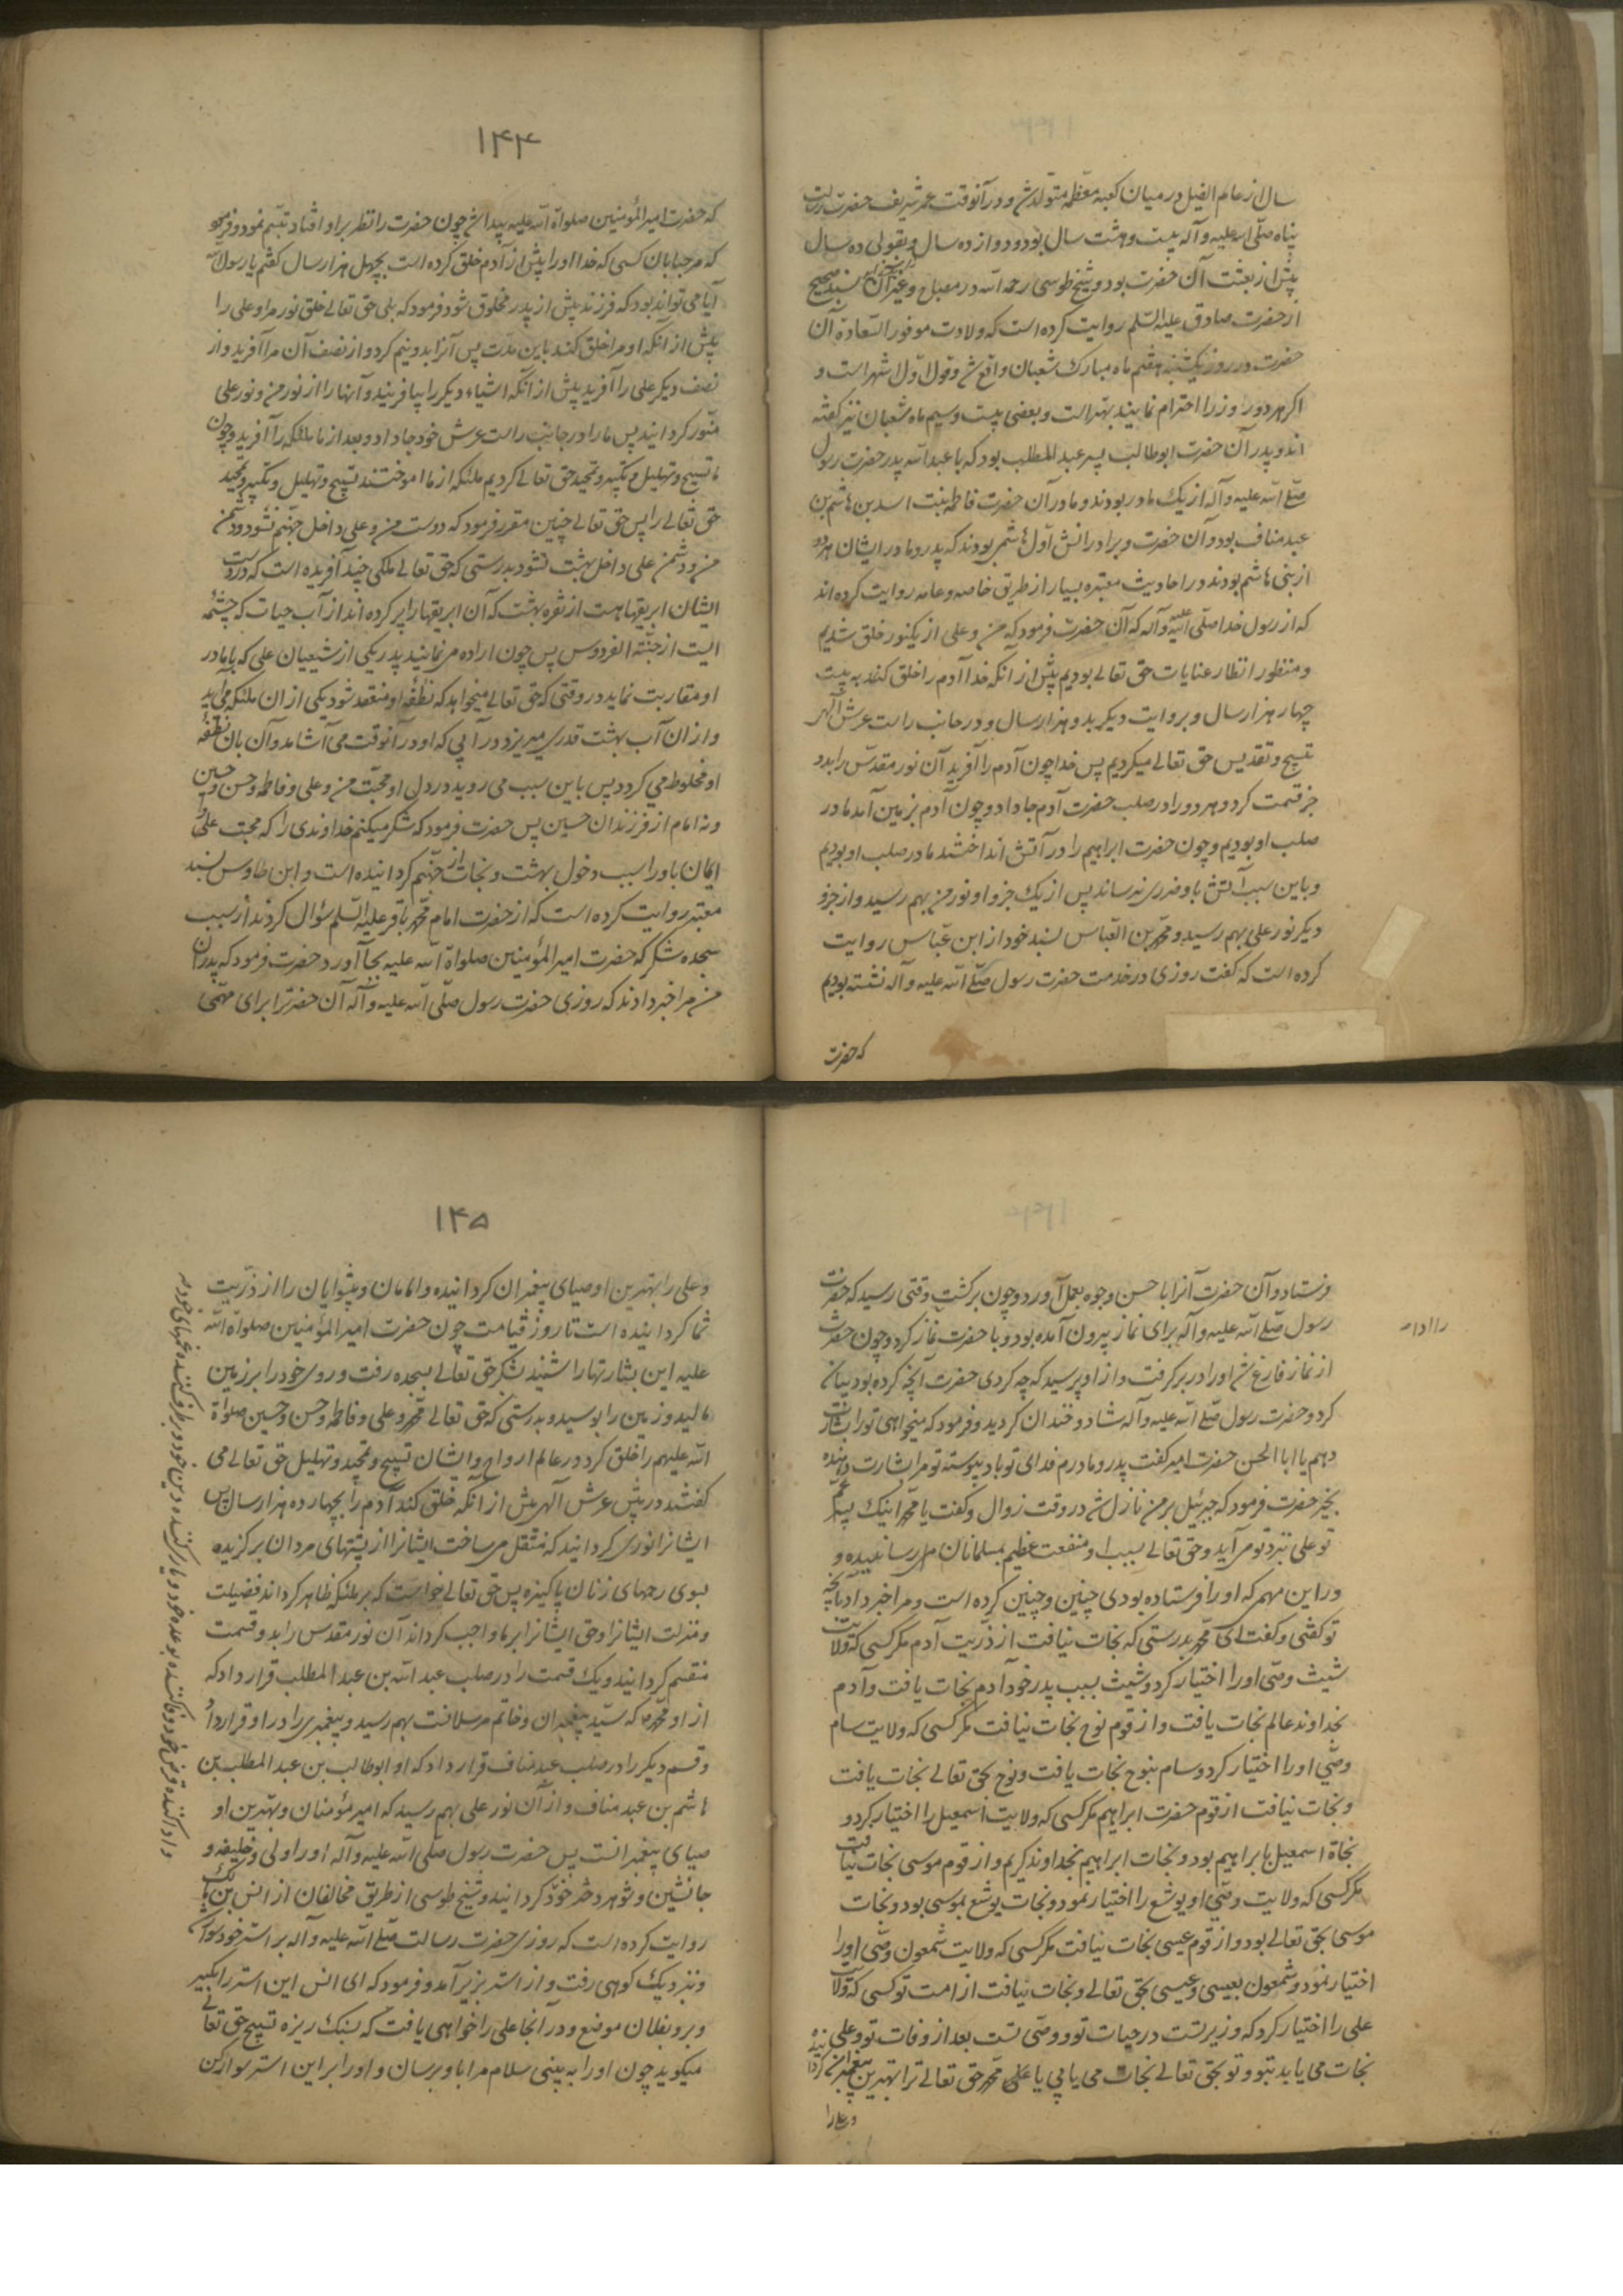 سال از عام الفیل در میان کعبه معظمه متولد شد و در آنوقت عمر شریف حضرت رسالت
پناه صلّی الله علیه و آله بیست و هشت سال بود و دوازده سال و بقولی ده سال
پیش از بعثت آن حضرت بود و شیخ طوسی رحمه الله در مصباح و غیر آن بسند صحیح
از حضرت صادق علیه السّلم روایت کرده است که ولادت موفور السّعادة آن
حضرت در روز یکشنبه هفتم ماه مبارک شعبان واقع شد و قول اوّل اشهر است و
اکر هر دو روز را احترام نمایند بهتر است و بعضی بیست و سیم ماه شعبان نیز کفته
اند و پدر آن حضرت ابوطالب پسر عبد المطلب بود که با عبد الله پدر حضرت رسول
صلّی الله علیه و آله از یک مادر بودند و مادر آن حضرت فاطمه بنت اسد بن هاشم بن
عبد مناف بود و آن حضرت و برادرانش اوّل هاشمی بودند که پدر و مادر ایشان هر دو
از بنی هاشم بودند و در احادیث معتبره بسیار از طریق خاصه و عامه روایت کرده اند
که از رسول خدا صلّی الله علیه و آله که آن حضرت فرمود که من و علی از یکنور خلق شدیم
و منظور انظار عنایات حق تعالی بودیم پیش از آنکه خدا آدم را خلق کند به بیست
چهار هزار سال و بروایت دیکر بدو هزار سال و در جانب راست عرش الهی
تسبیح و تقدیس حق تعالی میکردیم پس خدا چون آدم را آفرید آن نور مقدّس را بدو
جزء قسمت کرد و هر دو را در صلب حضرت آدم جا داد و چون آدم بزمین آمد ما در
صلب او بودیم و چون حضرت ابراهیم را در آتش انداختند ما در صلب او بودیم
و باین سبب آتش باو ضرری نرسانید پس از یک جزو او نور من بهم رسید و از جزو
دیکر نور علی بهم رسید و محمّد بن العبّاس بسند خود از ابن عبّاس روایت
کرده است که کفت روزی در خدمت حضرت رسول صلّی الله علیه و آله نشسته بودیم
که حضرت
۱۴۴
که حضرت امیر المؤمنین صلواة الله علیه پیدا شد چون حضرت را نظر بر او افتاد تبسّم نمود و فرمود
که مرحبا بآن کسی که خدا او را پیش از آدم خلق کرده است بچهل هزار سال کفتم یا رسول الله
آیا می تواند بود که فرزند پیش از پدر مخلوق شود فرمود که بلی حق تعالی خلق نور مرا و علی را
پیش از آنکه او مرا خلق کند باین مدّت پس آنرا بدو نیم کرد و از نصف آن مرا آفرید و از
نصف دیکر علی را آفرید پیش از آنکه اشیاء دیکر را بیافریند و آنها را از نور من و نور علی
منّور کردانید پس ما را در جانب راست عرش خود جا داد و بعد از ما ملئکه را آفرید و چون
ما تسبیح و تهلیل و تکبیر و تمجید حق تعالی کردیم ملئکه از ما اموختند تسبیح و تهلیل و تکبیر و تمجید
حق تعالی را پس حق تعالی چنین مقرر فرمود که دوست من و علی داخل جهنّم نشود و دشمن
من و دشمن علی داخل بهشت نشود بدرستی که حق تعالی ملکی چند آفریده است که در دست
ایشان ابریقها هست از نقره بهشت که آن ابریقها را پر کرده اند از آب حیات که چشمه
ایست از جنّة الفردوس پس چون اراده می نمایند پدر یکی از شیعیان علی که با مادر
او مقاربت نماید در وقتی که حق تعالی میخواهد که نطفه او منعقد شود یکی از ان ملئکه می آید
و از ان آب بهشت قدری میریزد در آبی که او در آنوقت می آشامد و آن بآن نطفه
او مخلوط می کردد پس باین سبب می روید در دل او محبّت من و علی و فاطمه و حسن و حسین
و نه امام از فرزندان حسین پس حضرت فرمود که شکر میکنم خداوندی را که محبت علی
ایمان باو را سبب دخول بهشت و نجات از جهنّم کردانیده است و ابن طاوس بسند
معتبر روایت کرده است که از حضرت امام محمّد باقر علیه السّلم سؤال کردند از سبب
سجده شکر که حضرت امیر المؤمنین صلواة الله علیه بجا آورد حضرت فرمود که پدران
من مرا خبر دادند که روزی حضرت رسول صلّی الله علیه و آله آن حضرترا برای مهّمی
فرستاد و آن حضرت آنرا باحسن وجوه بعمل آورد و چون برکشت وقتی رسید که حضرت
رسول صلّی الله علیه و آله برای نماز بیرون آمده بود و با حضرت نماز کرد و چون حضرت
از نماز فارغ شد او را در بر کرفت و از او پرسید که چه کردی حضرت آنچه کرده بود بیان
کرد و حضرت رسول صلّی الله علیه و آله شاد و خندان کردید و فرمود که میخواهی تو را بشارت
دهم یا ابا الحسن حضرت امیر کفت پدر و مادرم فدای تو باد پیوسته تو مرا بشارت دهنده
بخیر حضرت فرمود که جبرئیل بر من نازل شد در وقت زوال و کفت یا محمّد اینک پسر عمّ
تو علی نزد تو می آید و حق تعالی بسبب او منفعت عظیم بمسلمانان رسانیده و
در این مهم که او را فرستاده بودی چنین و چنین کرده است و مرا خبر داد بآنچه
تو کفتی و کفت ای محمّد بدرستی که نجات نیافت از ذرّیت آدم مکر کسی که ولایت
شیث وصّی او را اختیار کرد و شیث بسبب پدر خود آدم نجات یافت و آدم
بخداوند عالم نجات یافت و از قوم نوح نجات نیافت مکر کسی که ولایت سام
وصّی او را اختیار کرد و سام بنوح نجات یافت و نوح بحق تعالی نجات یافت
و نجات نیافت از قوم حضرت ابراهیم مکر کسی که ولایت اسمعیل را اختیار کرد و
نجاة اسمعیل بابراهیم بود و نجات ابراهیم بخداوند کریم و از قوم موسی نجات نیافت
مکر کسی که ولایت وصّی او یوشع را اختیار نمود و نجات یوشع بموسی بود و نجات
موسی بحق تعالی بود و از قوم عیسی نجات نیافت مکر کسی که ولایت شمعون وصّی او را
اختیار نمود و شمعون بعیسی و عیسی بحق تعالی و نجات نیافت از امت تو کسی که ولایت
علی را اختیار کرد که وزیر تست در حیات تو و وصّی تست بعد از وفات تو و علی
نجات می یابد بتو و تو بحق تعالی نجات می یابی یا محمّد حق تعالی ترا بهترین پیغمبران کردانیده
و علی را
۱۴۵
و علی را بهترین اوصیای پیغمبران کردانیده و امامان و پیشوایان را از ذرّیت
شما کردانیده است تا روز قیامت چون حضرت امیر المؤمنین صلواة الله
علیه این بشارتها را شنید بشکر حق تعالی بسجده رفت و روی خود را بر زمین
مالید و زمین را بوسید و بدرستی که حق تعالی محمّد و علی و فاطمه و حسن و حسین صلواة
الله علیهم را خلق کرد در عالم ارواح و ایشان تسبیح و تمجید و تهلیل حق تعالی می
کفتند در پیش عرش الهی پیش از آنکه خلق کند آدم را بچهارده هزار سال پس
ایشانرا نوری کردانید که منتقل می ساخت ایشانرا از پشتهای مردان برکزیده
بسوی رحمهای زنان پاکیزه پس حق تعالی خواست که بر ملئکه ظاهر کرداند فضیلت
و منزلت ایشانرا و حق ایشانرا بر ما واجب کرداند آن نور مقدس را بدو قسمت
منقسم کردانید و یک قسمت را در صلب عبد الله بن عبد المطلب قرار داد که
از او محمّد که سیّد پیغمبران و خاتم مرسلانست بهم رسید و پیغمبری را در او قرار داد
و قسم دیکر را در صلب عبد مناف قرار داد که او ابوطالب بن عبد المطلب بن
هاشم بن عبد مناف و از آن نور علی بهم رسید که امیر مؤمنان و بهترین او
صیای پیغمبرانست پس حضرت رسول صلّی الله علیه و آله او را ولی و خلیفه و
جانشین و شوهر دختر خود کردانید و شیخ طوسی از طریق مخالفان از انس بن مالک
روایت کرده است که روزی حضرت رسالت صلّی الله علیه و آله بر استر خود سوار شد
و نزدیک کوهی رفت و از استر بزیر آمد و فرمود که ای انس این استر را بکیر
و برو بفلان موضع و در آنجا علی را خواهی یافت که بسنک ریزه تسبیح حق تعالی
میکوید چون او را به بینی سلام مرا باو برسان و او را بر این استر سوار کن